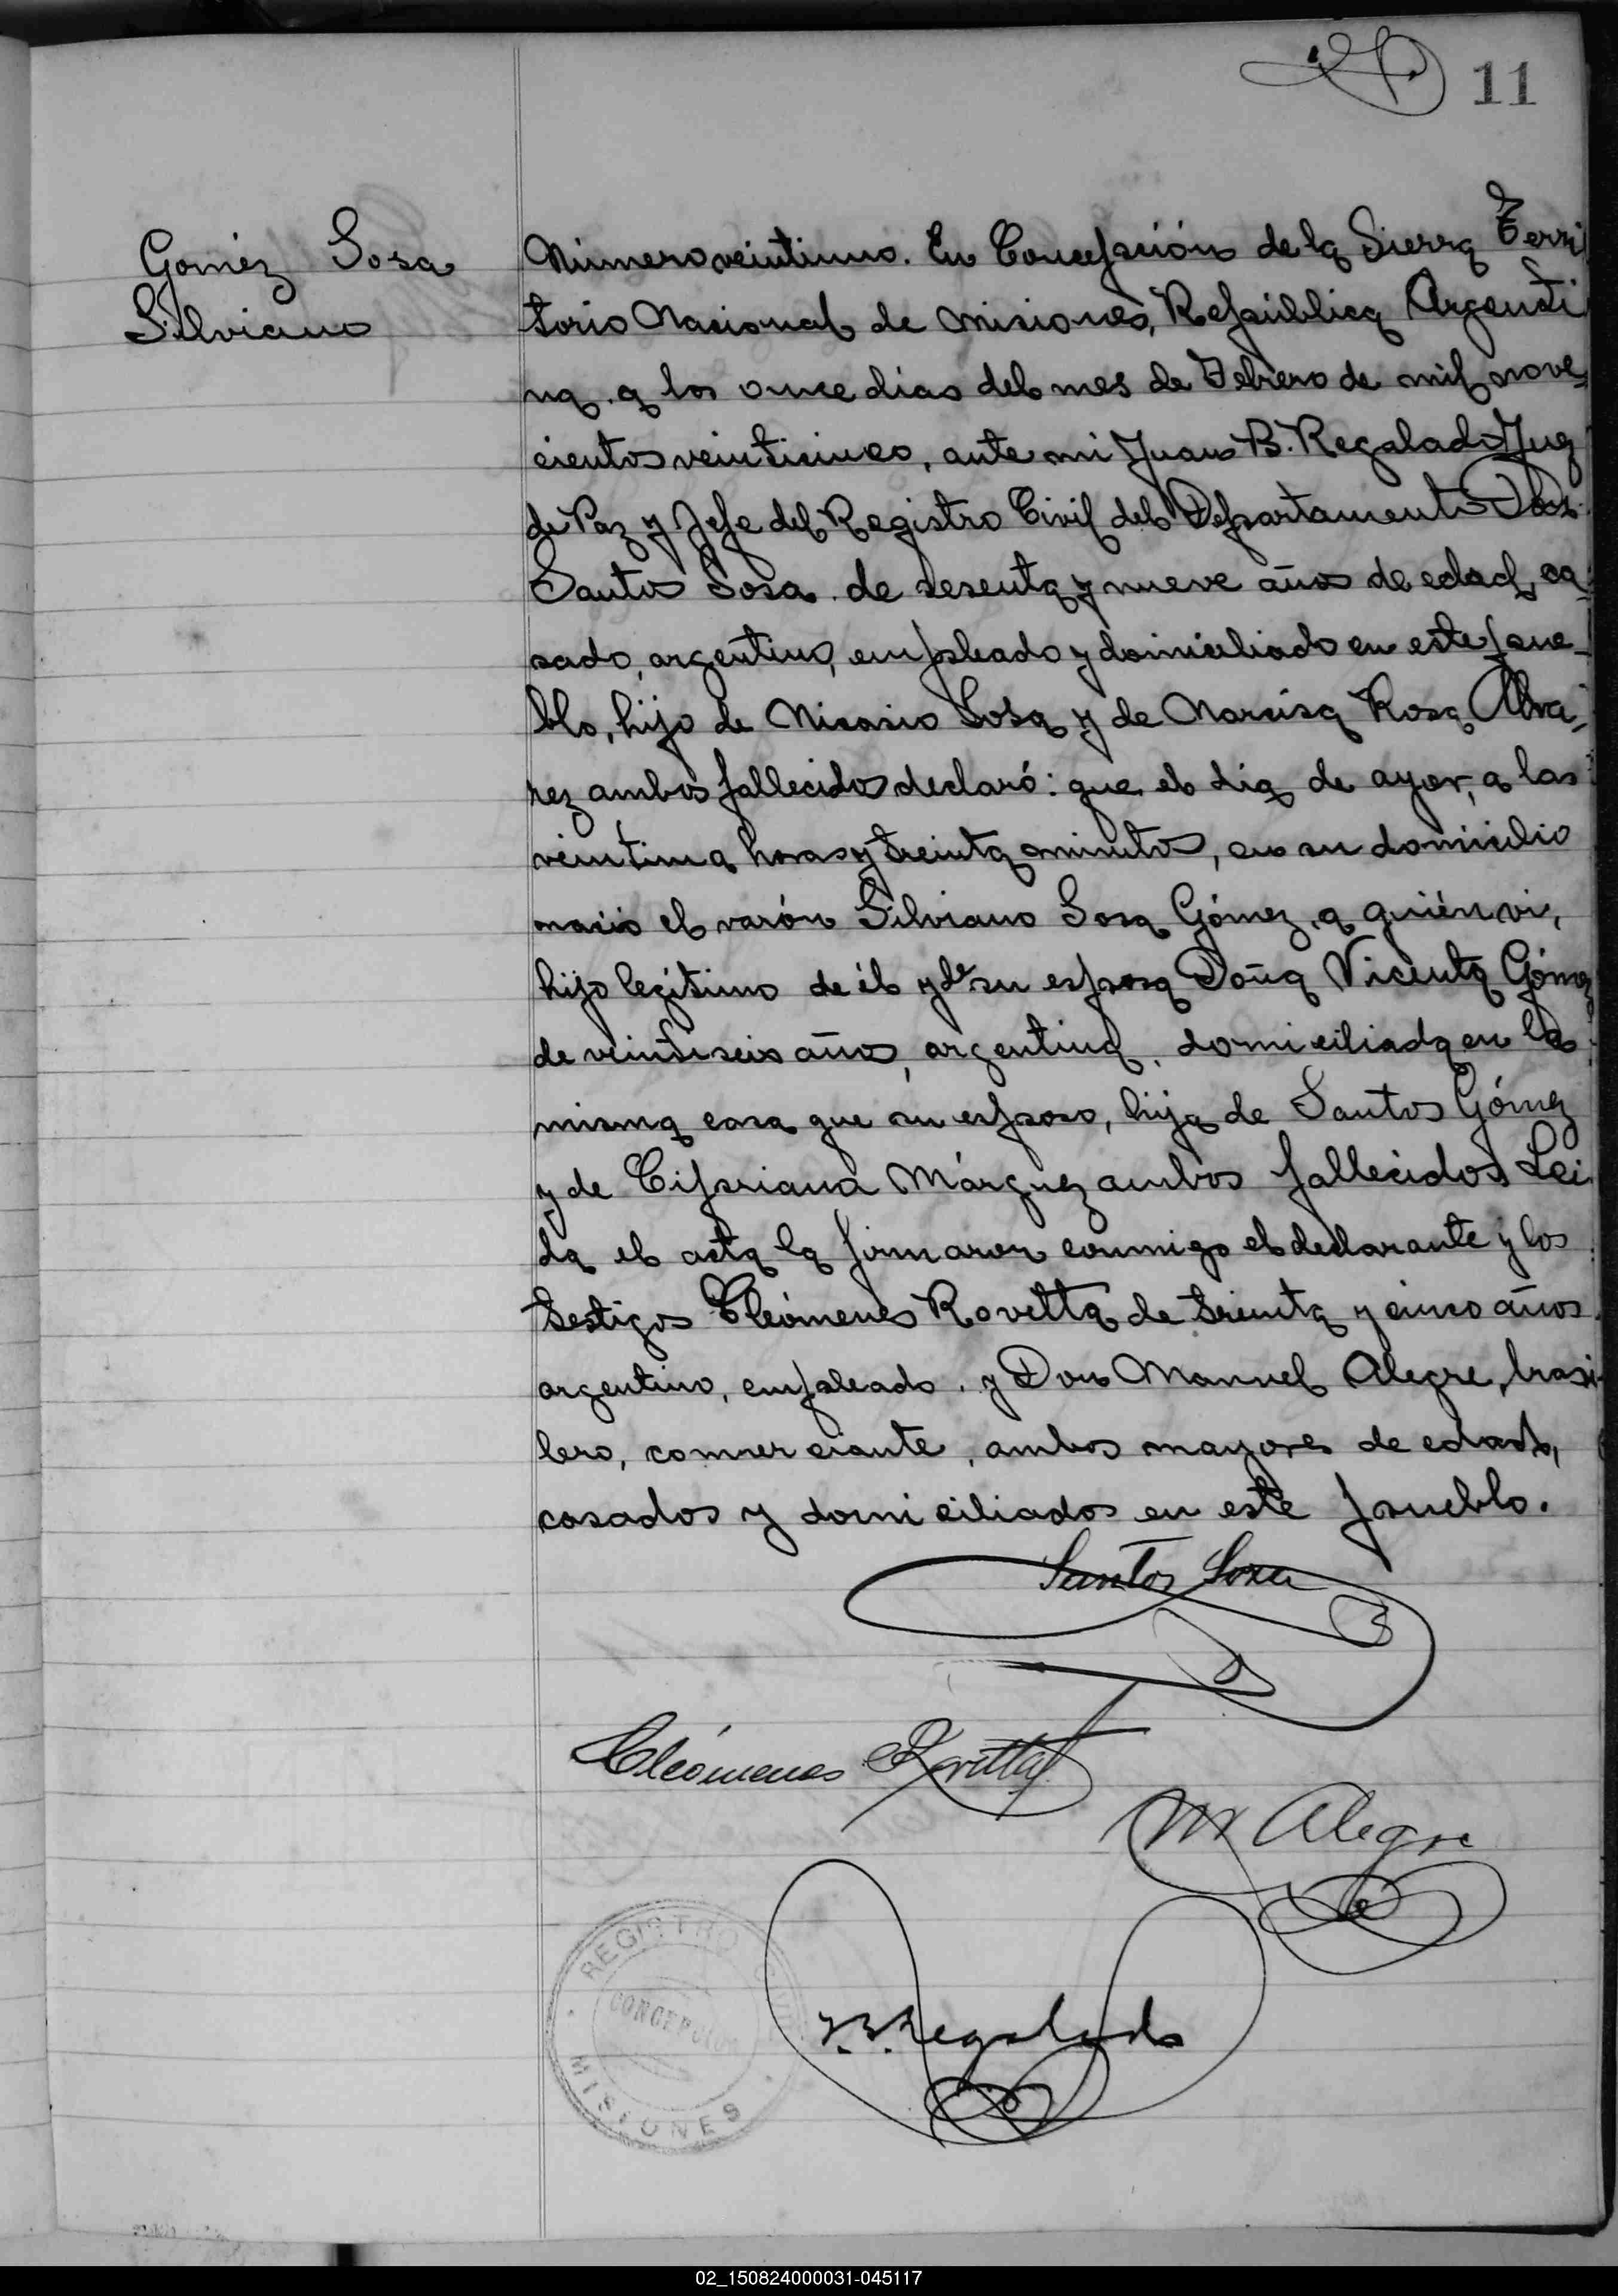 11
Gomez Sosa
Silviano
Número veintiuno. En Concepción de la Sierra Terri
torio Nacional de Misiones, República Argenti
na a los once dias del mes de Febrero de mil nove-
cientos veinticinco, ante mi Juan B. Regalado Juez
de Paz y Jefe del Registro Civil del Departamento Don
Santos Sosa de sesenta y nueve años de edad, ca-
sado, argentino, empleado y domiciliado en este pue-
blo, hijo de Nicasio Sosa y de Narcisa Rosa Alva-
rez ambos fallecidos declaró: que el dia de ayer, a las
veintiuna horas y treinta minutos, en su domicilio
nació el varón Silviano Sosa Gómez, a quién vi,
hijo legítimo de él y de su esposa Doña Vicenta Gómez
de veintiseis años, argentina, domiciliada en la
misma casa que su esposo, hija de Santos Gómez
y de Cipriana Márquez ambos fallecidos. Lei
da el acta la firmaron conmigo el declarante y los
testigos Cleómenes Rovetta de treinta y cinco años
argentino, empleado, y Don Manuel Alegre, brasi-
lero, comerciante, ambos mayores de edad,
casados y domiciliados en este pueblo.
Santos Sosa
Cleómenes Rovetta
M Alegre
J.B. Regalado
REGISTRO CIVIL
CONCEPCION
MISIONES
02_150824000031-045117